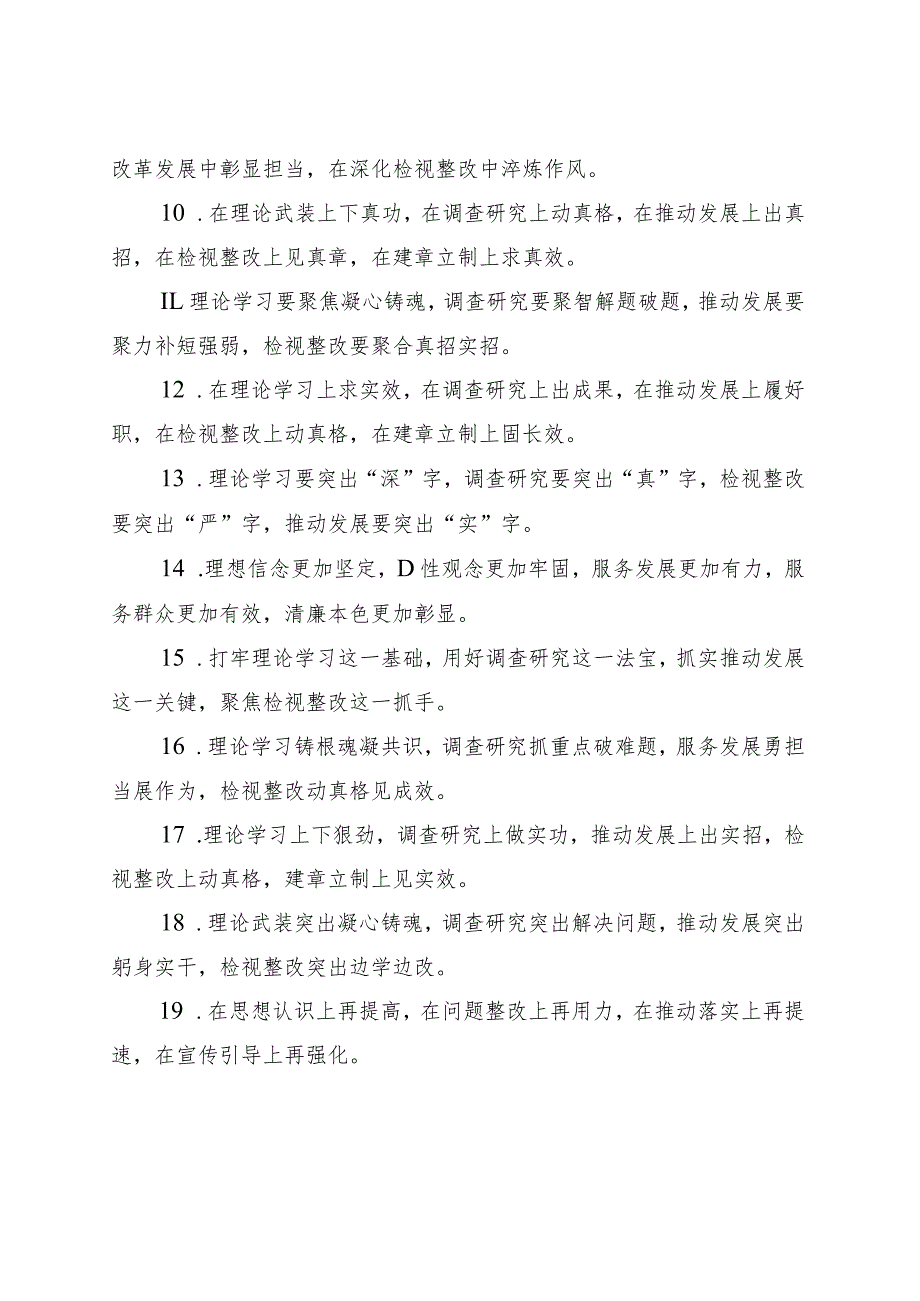 改革发展中彰显担当，在深化检视整改中淬炼作风。
10 .在理论武装上下真功，在调查研究上动真格，在推动发展上出真
招，在检视整改上见真章，在建章立制上求真效。
IL理论学习要聚焦凝心铸魂，调查研究要聚智解题破题，推动发展要
聚力补短强弱，检视整改要聚合真招实招。
12 .在理论学习上求实效，在调查研究上出成果，在推动发展上履好
职，在检视整改上动真格，在建章立制上固长效。
13 .理论学习要突出“深”字，调查研究要突出“真”字，检视整改
要突出“严”字，推动发展要突出“实”字。
14 .理想信念更加坚定，D性观念更加牢固，服务发展更加有力，服
务群众更加有效，清廉本色更加彰显。
15 .打牢理论学习这一基础，用好调查研究这一法宝，抓实推动发展
这一关键，聚焦检视整改这一抓手。
16 .理论学习铸根魂凝共识，调查研究抓重点破难题，服务发展勇担
当展作为，检视整改动真格见成效。
17 .理论学习上下狠劲，调查研究上做实功，推动发展上出实招，检
视整改上动真格，建章立制上见实效。
18 .理论武装突出凝心铸魂，调查研究突出解决问题，推动发展突出
躬身实干，检视整改突出边学边改。
19 .在思想认识上再提高，在问题整改上再用力，在推动落实上再提
速，在宣传引导上再强化。